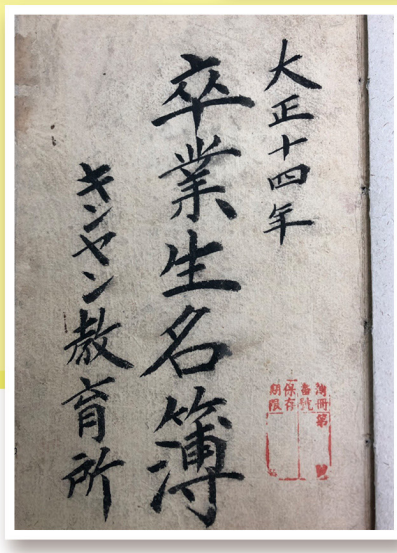 大正十四年
卒業生名簿
キンヤン教育所
第　號
番號
保存
期限